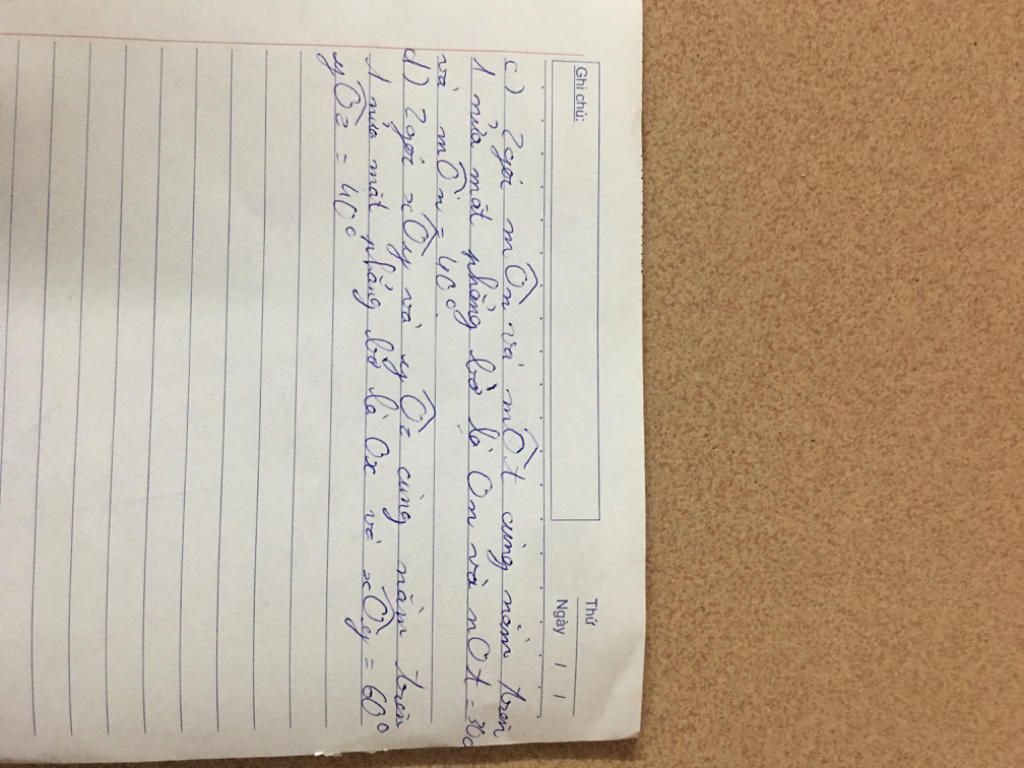 Ghi chú:
Thứ
Ngày / /
c) 2 gói mÔn và mÔt cùng nằm trên
1 nửa mặt phẳng bờ là On và nOt = 30
và mÔn = 40°
d) 2 gói xÔy và yÔz cùng nằm trên
1 nửa mặt phẳng bờ là Ox và xÔy = 60°
yÔz = 40°